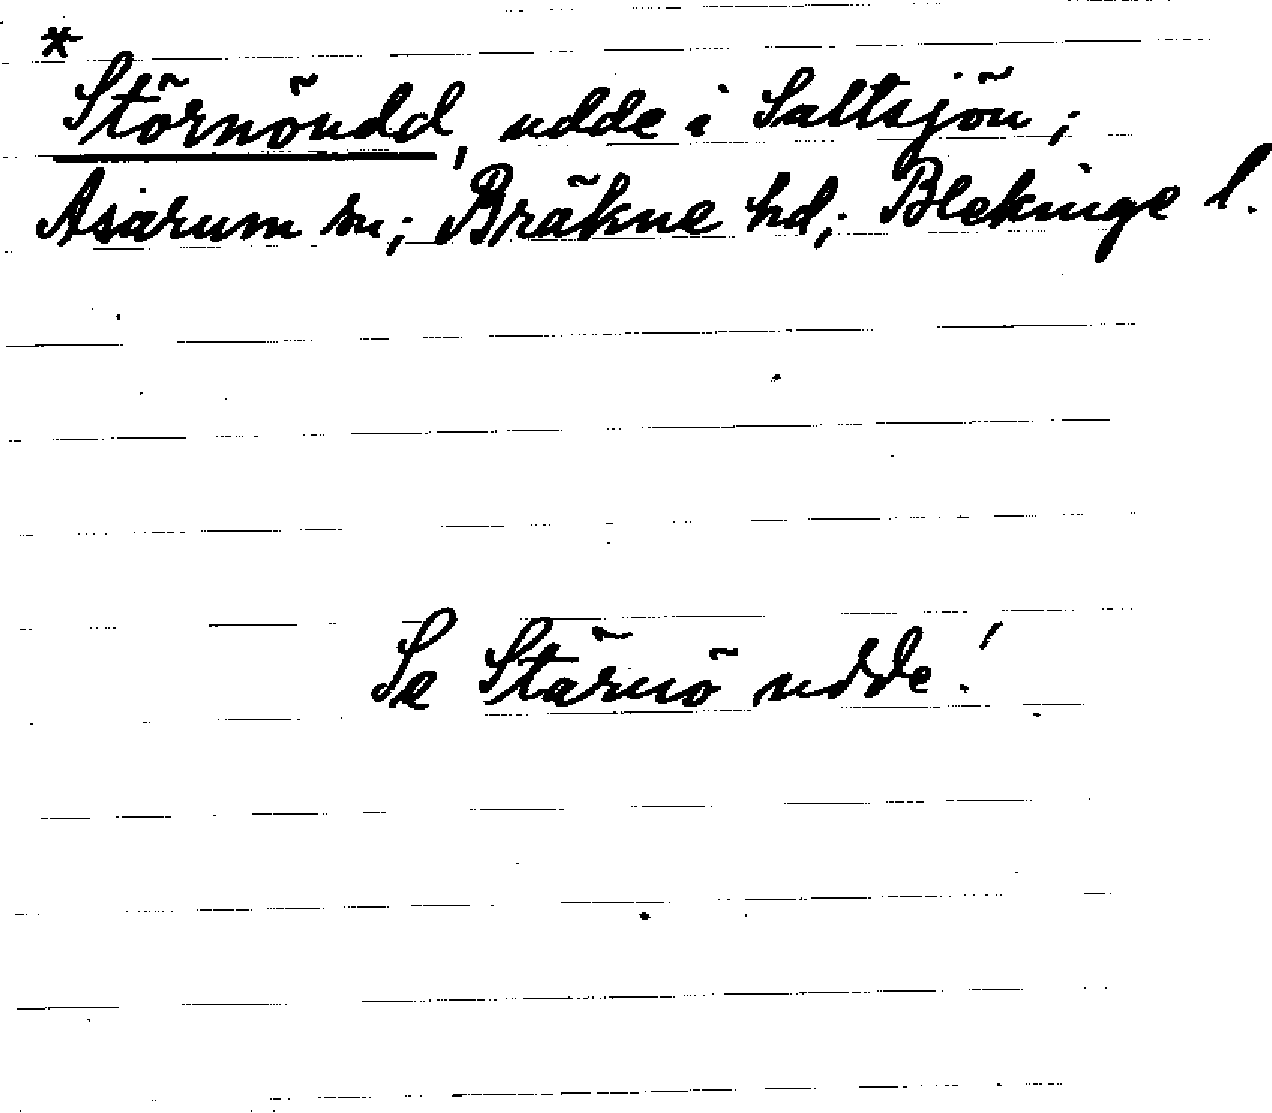 *
Störnöudd, udde i Saltsjön;
Asarum sn; Bräkne hd; Blekinge l.
Se Stärnö udde!